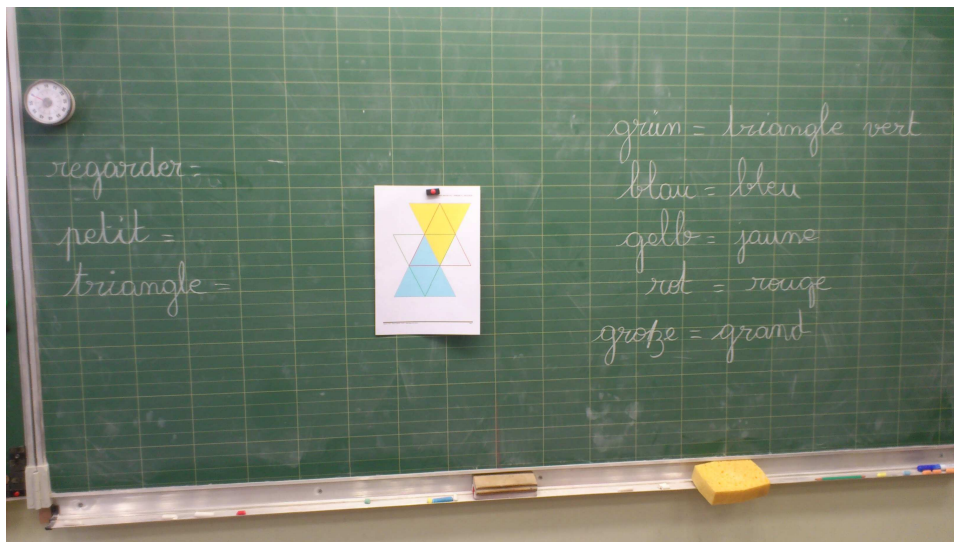 regarder =
petit =
triangle =
grün = triangle vert
blau = bleu
gelb = jaune
rot = rouge
große = grand